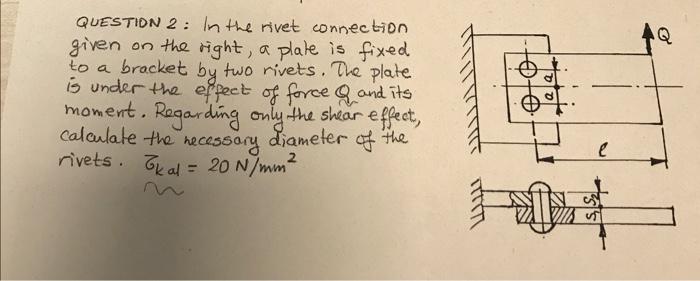 QUESTION 2: In the rivet connection
given on the right, a plate is fixed
to a bracket by two rivets. The plate
is under the effect of force Q and its
moment. Regarding only the shear effect,
calculate the necessary diameter of the
rivets. τkal = 20 N/mm²
Q
a
a
l
S₂
S₁